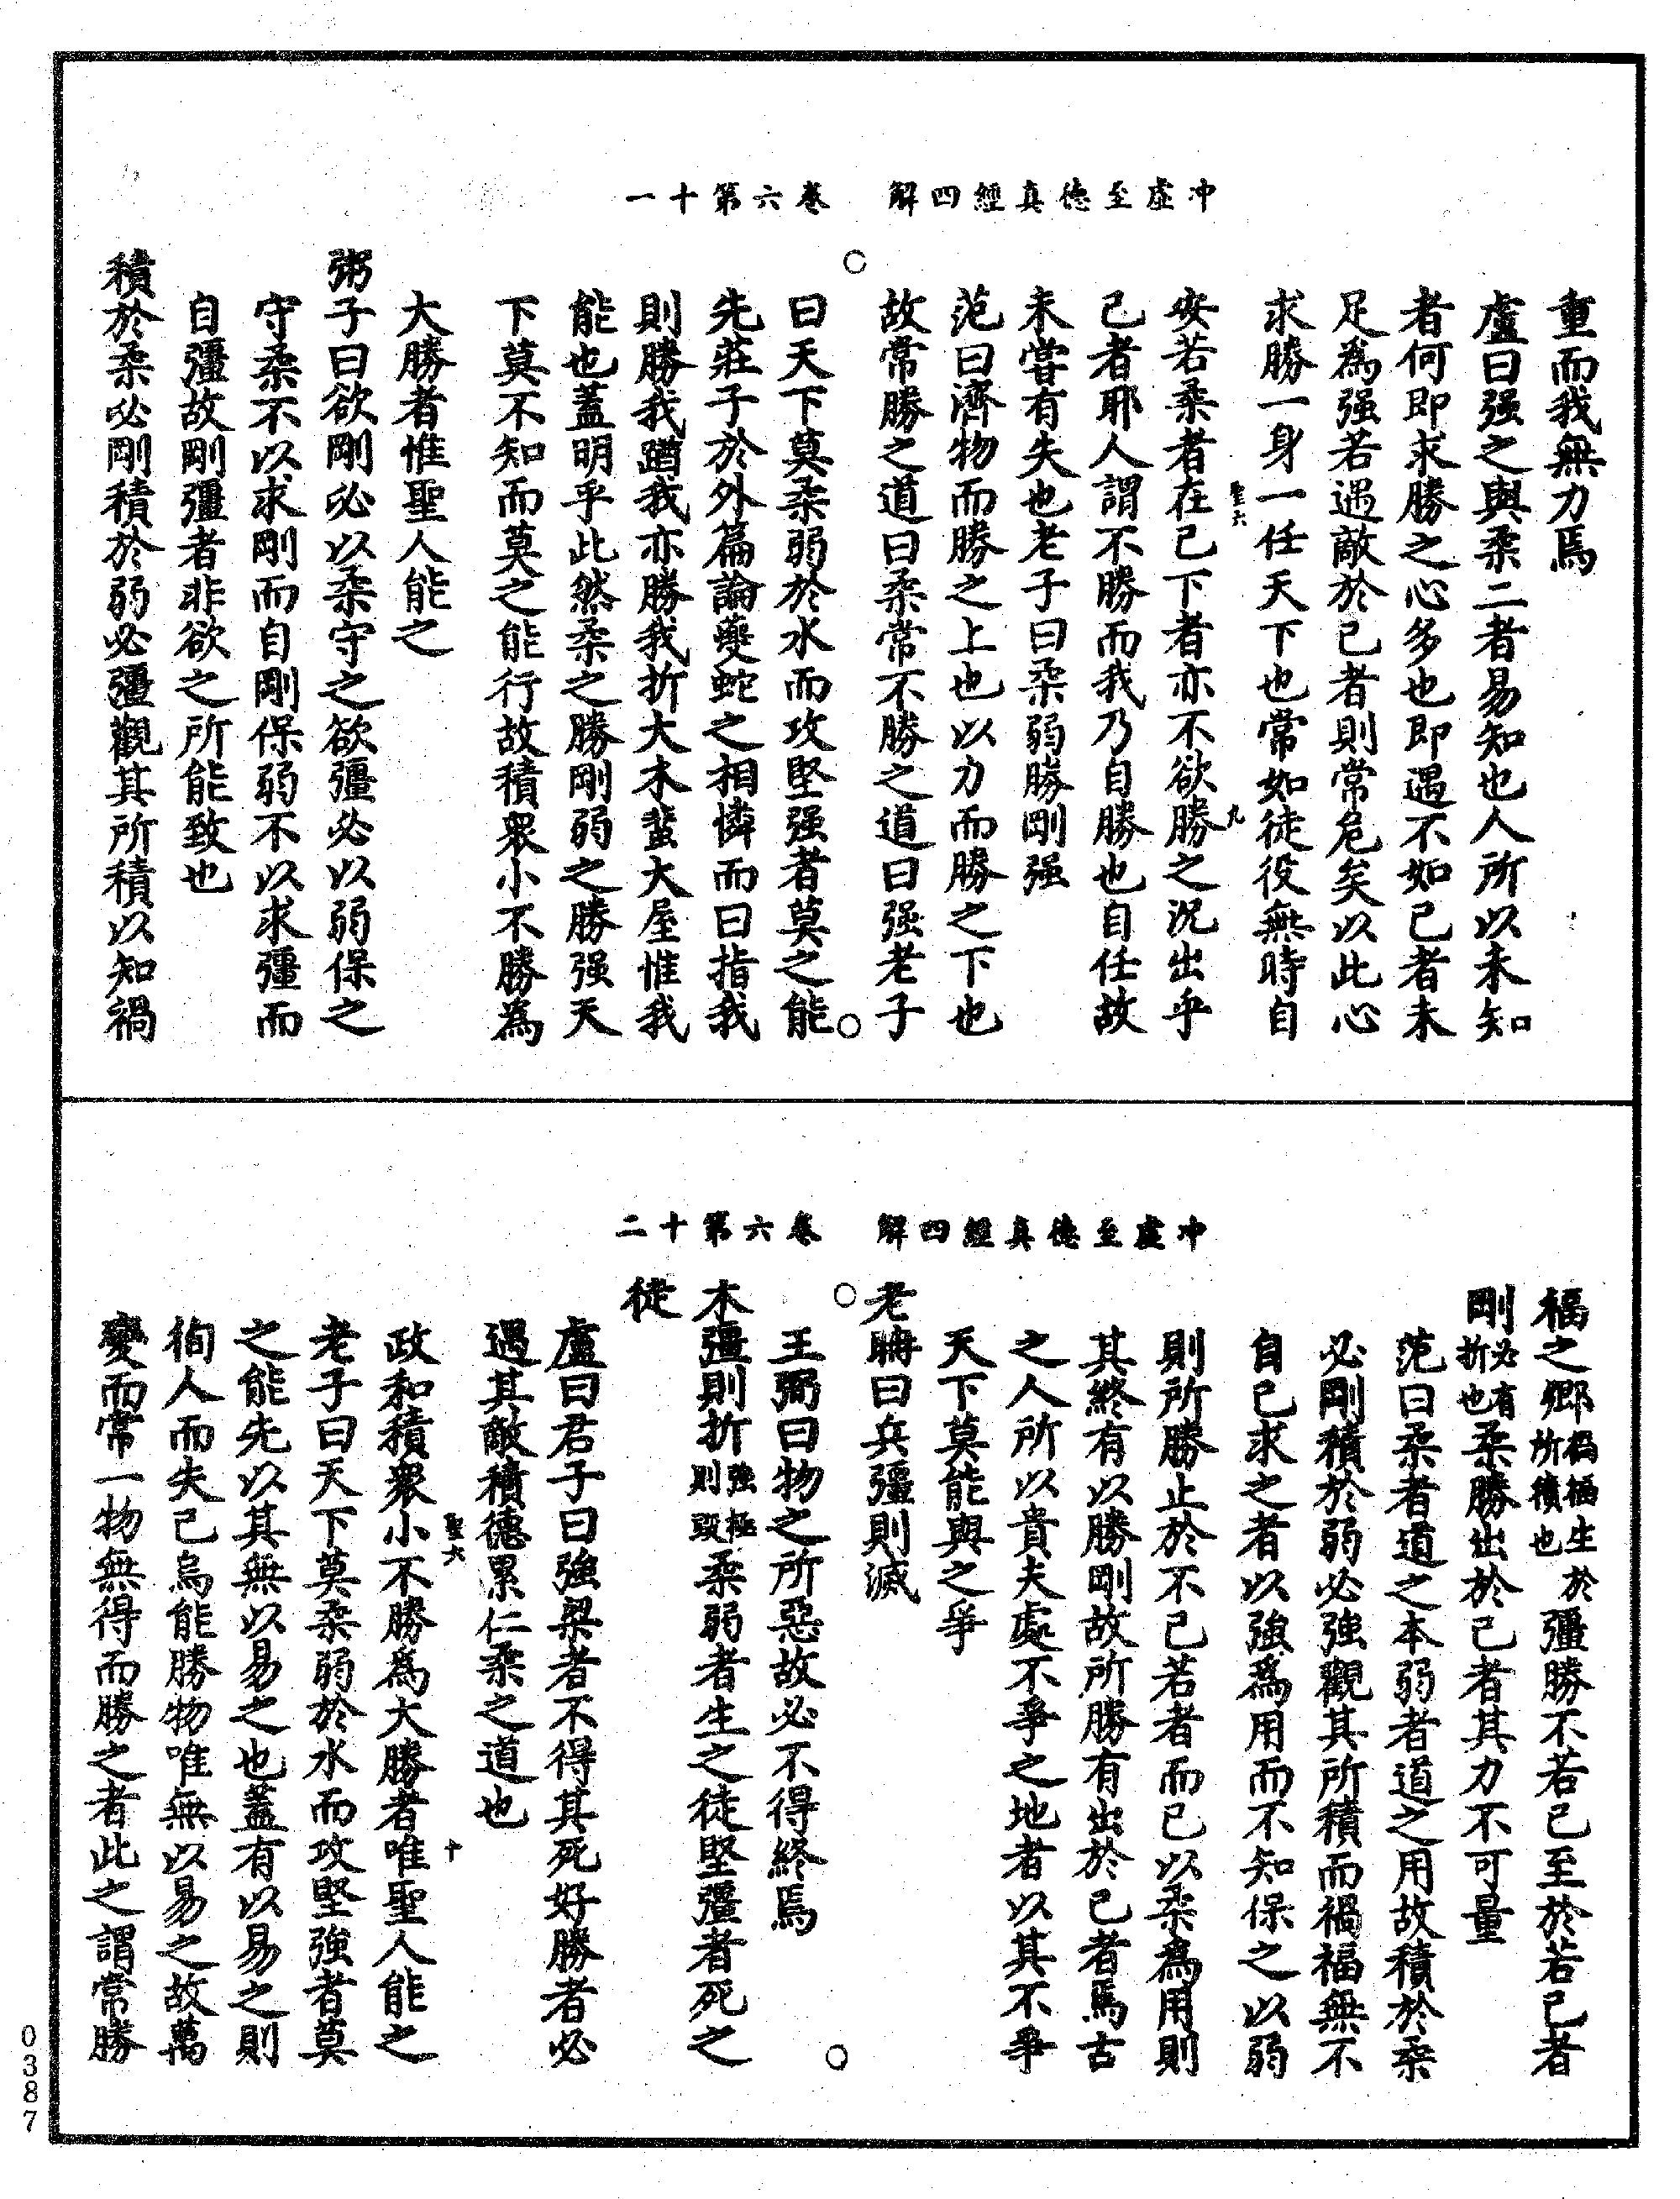 冲虛至德真經四解　卷六第十一
重而我無力焉
盧曰强之與柔二者易知也人所以未知
者何即求勝之心多也即遇不如己者未
足為强若遇敵於己者則常危矣以此心
求勝一身一任天下也常如徒役無時自
聖六　九
安若柔者在己下者亦不欲勝之況出乎
己者耶人謂不勝而我乃自勝也自任故
未甞有失也老子曰柔弱勝剛强
范曰濟物而勝之上也以力而勝之下也
故常勝之道曰柔常不勝之道曰强老子
○　○
曰天下莫柔弱於水而攻堅强者莫之能
先莊子於外篇論夔蛇之相憐而曰指我
則勝我蹭我亦勝我折大木蜚大屋惟我
能也蓋明乎此然柔之勝剛弱之勝强天
下莫不知而莫之能行故積衆小不勝為
大勝者惟聖人能之
粥子曰欲剛必以柔守之欲彊必以弱保之
守柔不以求剛而自剛保弱不以求彊而
自彊故剛彊者非欲之所能致也
積於柔必剛積於弱必彊觀其所積以知禍
冲虛至德真經四解　卷六第十二
福之鄉禍福生於所積也彊勝不若己至於若己者
剛必有折也柔勝出於己者其力不可量
范曰柔者道之本弱者道之用故積於柔
必剛積於弱必強觀其所積而禍福無不
自己求之者以強爲用而不知保之以弱
則所勝止於不己若者而已以柔爲用則
其終有以勝剛故所勝有出於己者焉古
之人所以貴夫處不爭之地者以其不爭
天下莫能與之爭
老聃曰兵彊則滅
○　○
王弼曰物之所惡故必不得終焉
木彊則折強極則毀柔弱者生之徒堅彊者死之
徒
盧曰君子曰強梁者不得其死好勝者必
遇其敵積德累仁柔之道也
聖六　十
政和積衆小不勝爲大勝者唯聖人能之
老子曰天下莫柔弱於水而攻堅強者莫
之能先以其無以易之也蓋有以易之則
徇人而失己烏能勝物唯無以易之故萬
變而常一物無得而勝之者此之謂常勝
0387